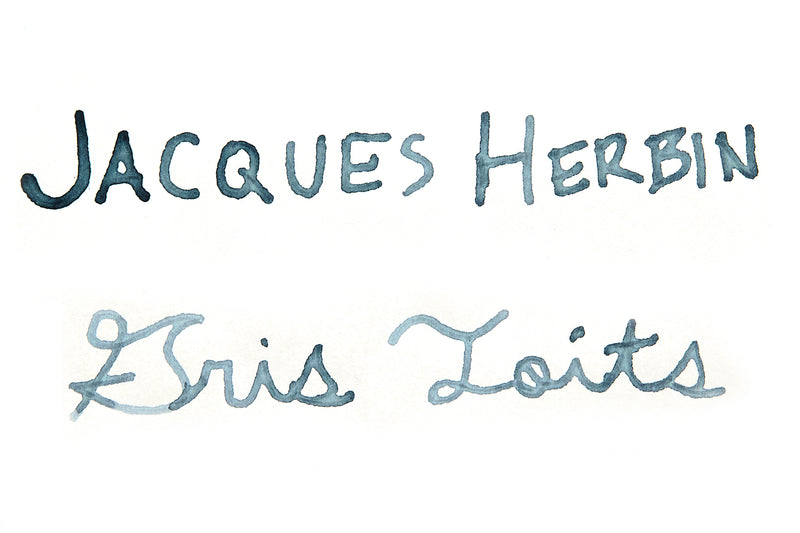 JACQUES HERBIN
Gris Toits